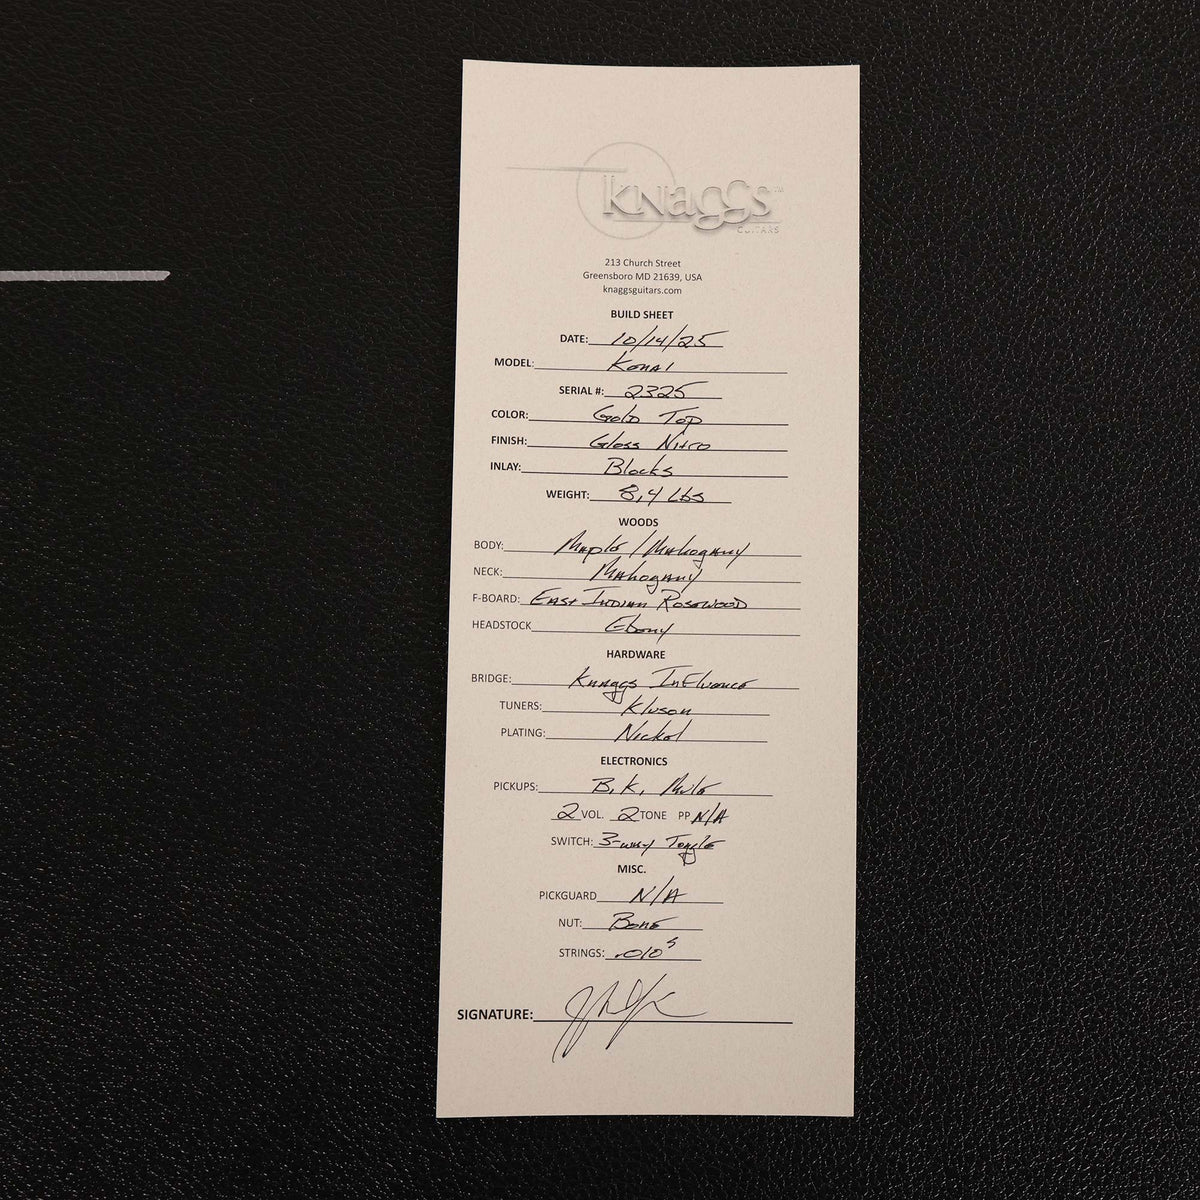 KNaGGS™
GUITARS
213 Church Street
Greensboro MD 21639, USA
knaggsguitars.com
BUILD SHEET
DATE: 10/14/25
MODEL: Kenai
SERIAL #: 2325
COLOR: Gold Top
FINISH: Gloss Nitro
INLAY: Blocks
WEIGHT: 8.4 Lbs
WOODS
BODY: Maple / Mahogany
NECK: Mahogany
F-BOARD: East Indian Rosewood
HEADSTOCK Ebony
HARDWARE
BRIDGE: Knaggs Influence
TUNERS: Kluson
PLATING: Nickel
ELECTRONICS
PICKUPS: B.K. Mule
2 VOL. 2 TONE PP N/A
SWITCH: 3-way Toggle
MISC.
PICKGUARD N/A
NUT: Bone
STRINGS: .010s
SIGNATURE: